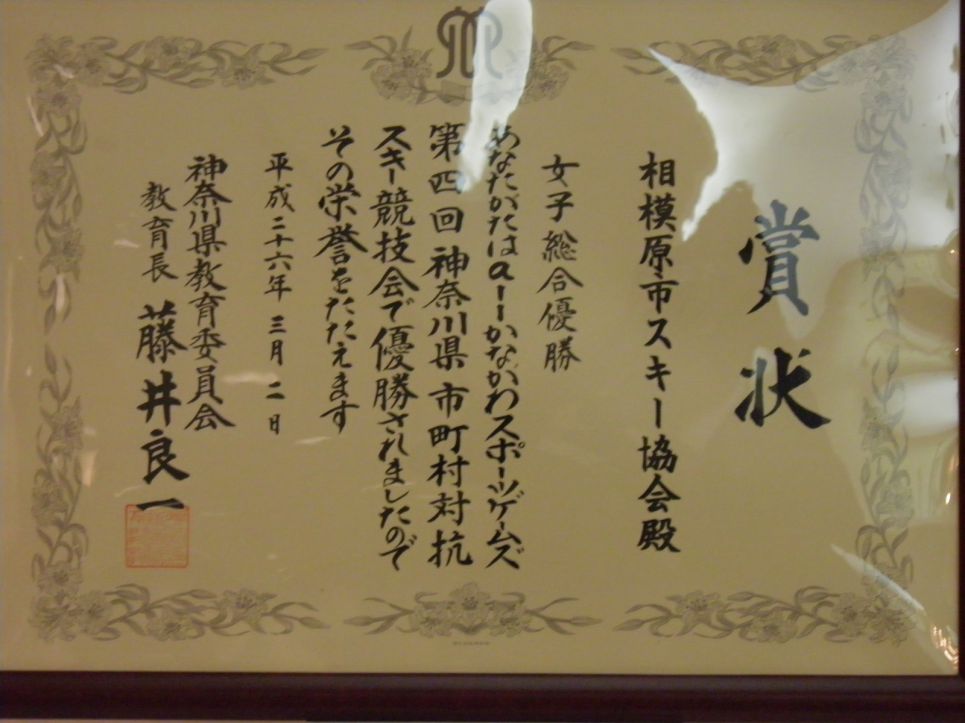 賞状
相模原市スキー協会殿
女子総合優勝
あなたがたはαーかながわスポーツゲームズ
第四回神奈川県市町村対抗
スキー競技会で優勝されましたので
その栄誉をたたえます
平成二十六年三月二日
神奈川県教育委員会
教育長 藤井良一